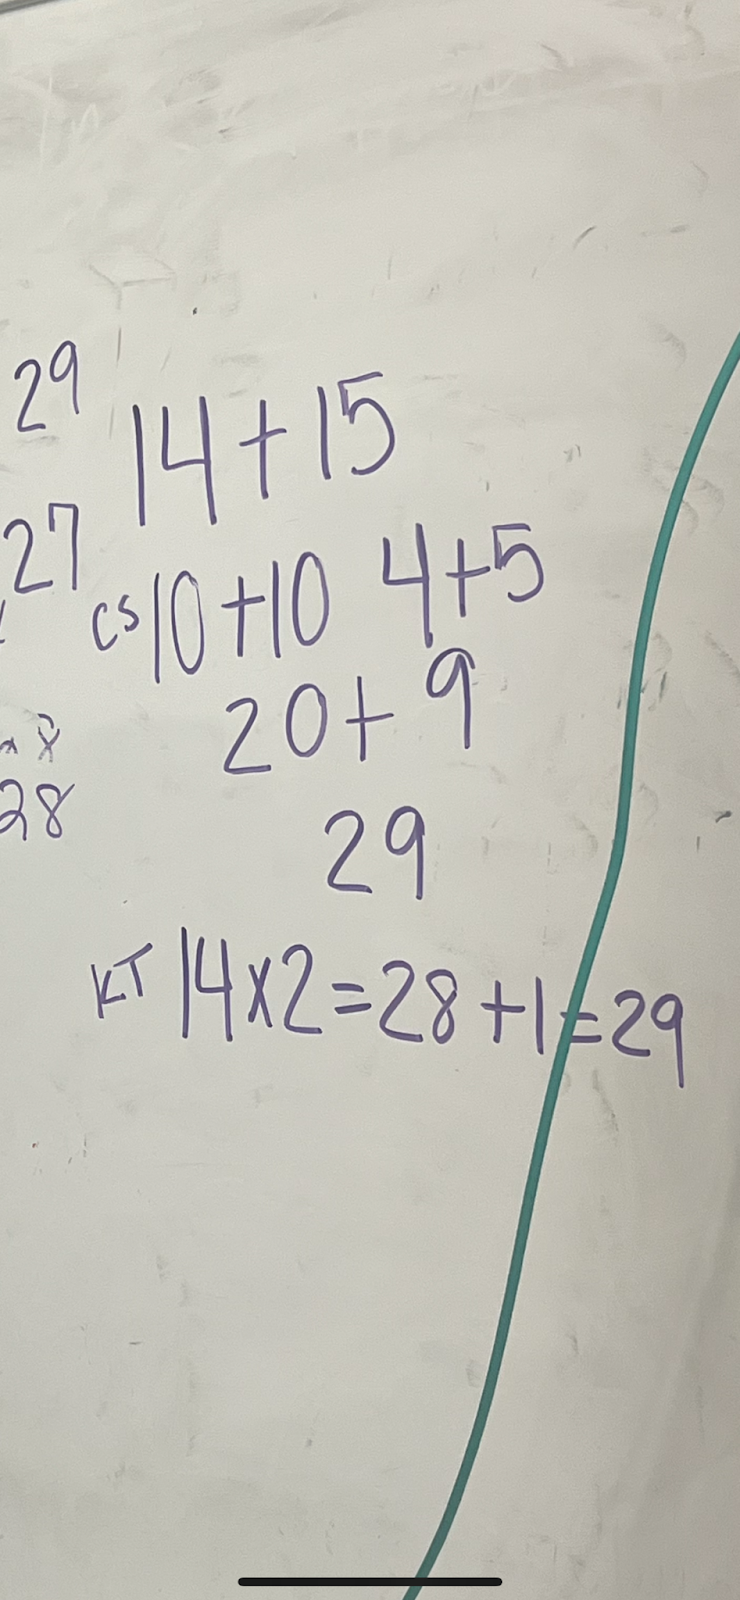 29
14+15
27
CS 10+10 4+5
20+ 9
28
29
KT 14x2=28+1=29